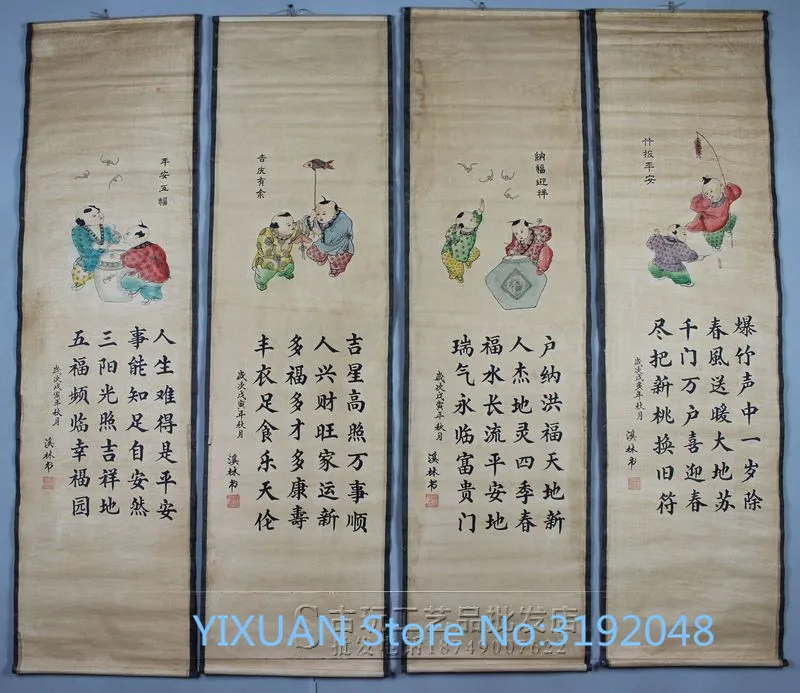 平安五福
人生难得是平安
事能知足自安然
三阳光照吉祥地
五福频临幸福园
歲次戊寅年秋月
溪林书
吉庆有余
吉星高照万事顺
人兴财旺家运新
多福多才多康寿
丰衣足食乐天伦
歲次戊寅年秋月
溪林书
納福迎祥
户纳洪福天地新
人杰地灵四季春
福水长流平安地
瑞气永临富贵门
歲次戊寅年秋月
溪林书
竹报平安
爆竹声中一岁除
春風送暖大地苏
千门万户喜迎春
尽把新桃换旧符
歲次戊寅年秋月
溪林书
古玩工艺品批发店
YIXUAN Store No.3192048
18749007622